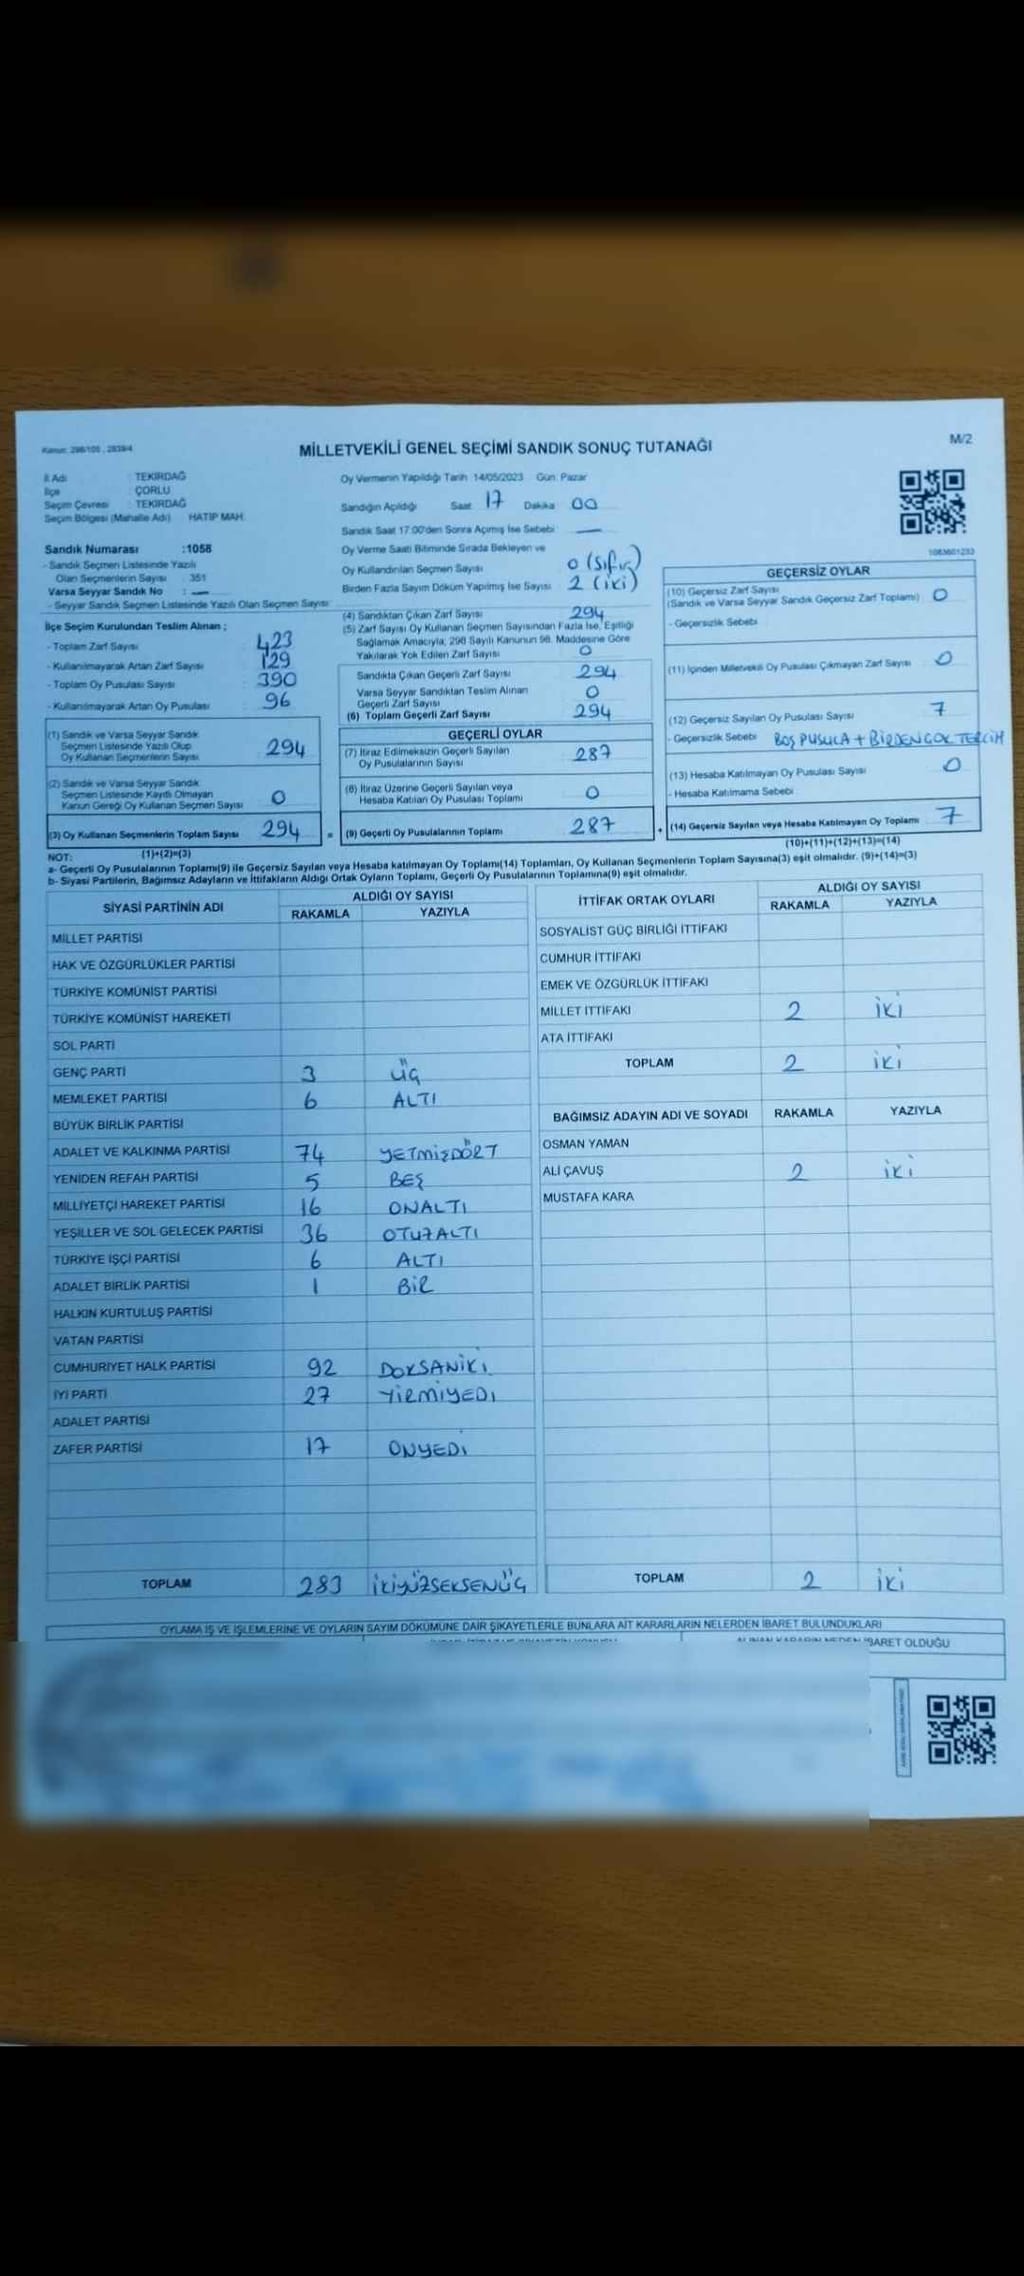 Kanun: 298/105 , 2839/4
MİLLETVEKİLİ GENEL SEÇİMİ SANDIK SONUÇ TUTANAĞI
M/2
İl Adı : TEKİRDAĞ
İlçe : ÇORLU
Seçim Çevresi : TEKİRDAĞ
Seçim Bölgesi (Mahalle Adı) : HATİP MAH.
Sandık Numarası :1058
- Sandık Seçmen Listesinde Yazılı
Olan Seçmenlerin Sayısı : 351
Varsa Seyyar Sandık No : —
- Seyyar Sandık Seçmen Listesinde Yazılı Olan Seçmen Sayısı:
İlçe Seçim Kurulundan Teslim Alınan ;
- Toplam Zarf Sayısı : 423
- Kullanılmayarak Artan Zarf Sayısı : 129
- Toplam Oy Pusulası Sayısı : 390
- Kullanılmayarak Artan Oy Pusulası : 96
(1) Sandık ve Varsa Seyyar Sandık
Seçmen Listesinde Yazılı Olup
Oy Kullanan Seçmenlerin Sayısı 294
(2) Sandık ve Varsa Seyyar Sandık
Seçmen Listesinde Kayıtlı Olmayan
Kanun Gereği Oy Kullanan Seçmen Sayısı 0
(3) Oy Kullanan Seçmenlerin Toplam Sayısı 294 =
(1)+(2)=(3)
Oy Vermenin Yapıldığı Tarih :14/05/2023 Gün: Pazar
Sandığın Açıldığı Saat 17 Dakika 00
Sandık Saat 17:00'den Sonra Açılmış İse Sebebi : —
Oy Verme Saati Bitiminde Sırada Bekleyen ve
Oy Kullandırılan Seçmen Sayısı : 0 (Sıfır)
Birden Fazla Sayım Döküm Yapılmış İse Sayısı : 2 (iki)
(4) Sandıktan Çıkan Zarf Sayısı : 294
(5) Zarf Sayısı Oy Kullanan Seçmen Sayısından Fazla İse, Eşitliği
Sağlamak Amacıyla; 298 Sayılı Kanunun 98. Maddesine Göre
Yakılarak Yok Edilen Zarf Sayısı : 0
Sandıkta Çıkan Geçerli Zarf Sayısı : 294
Varsa Seyyar Sandıktan Teslim Alınan
Geçerli Zarf Sayısı : 0
(6) Toplam Geçerli Zarf Sayısı : 294
GEÇERLİ OYLAR
(7) İtiraz Edilmeksizin Geçerli Sayılan
Oy Pusulalarının Sayısı 287
(8) İtiraz Üzerine Geçerli Sayılan veya
Hesaba Katılan Oy Pusulası Toplamı 0
(9) Geçerli Oy Pusulalarının Toplamı 287 +
1083601233
GEÇERSİZ OYLAR
(10) Geçersiz Zarf Sayısı
(Sandık ve Varsa Seyyar Sandık Geçersiz Zarf Toplamı) : 0
- Geçersizlik Sebebi
(11) İçinden Milletvekili Oy Pusulası Çıkmayan Zarf Sayısı : 0
(12) Geçersiz Sayılan Oy Pusulası Sayısı : 7
- Geçersizlik Sebebi BOŞ PUSULA + BİRDEN ÇOK TERCİH
(13) Hesaba Katılmayan Oy Pusulası Sayısı : 0
- Hesaba Katılmama Sebebi
(14) Geçersiz Sayılan veya Hesaba Katılmayan Oy Toplamı : 7
(10)+(11)+(12)+(13)=(14)
NOT:
a- Geçerli Oy Pusulalarının Toplamı(9) ile Geçersiz Sayılan veya Hesaba katılmayan Oy Toplamı(14) Toplamları, Oy Kullanan Seçmenlerin Toplam Sayısına(3) eşit olmalıdır. (9)+(14)=(3)
b- Siyasi Partilerin, Bağımsız Adayların ve İttifakların Aldığı Ortak Oyların Toplamı, Geçerli Oy Pusulalarının Toplamına(9) eşit olmalıdır.
SİYASİ PARTİNİN ADI ALDIĞI OY SAYISI
RAKAMLA YAZIYLA
MİLLET PARTİSİ
HAK VE ÖZGÜRLÜKLER PARTİSİ
TÜRKİYE KOMÜNİST PARTİSİ
TÜRKİYE KOMÜNİST HAREKETİ
SOL PARTİ
GENÇ PARTİ 3 ÜÇ
MEMLEKET PARTİSİ 6 ALTI
BÜYÜK BİRLİK PARTİSİ
ADALET VE KALKINMA PARTİSİ 74 YETMİŞDÖRT
YENİDEN REFAH PARTİSİ 5 BEŞ
MİLLİYETÇİ HAREKET PARTİSİ 16 ONALTI
YEŞİLLER VE SOL GELECEK PARTİSİ 36 OTUZALTI
TÜRKİYE İŞÇİ PARTİSİ 6 ALTI
ADALET BİRLİK PARTİSİ 1 BİR
HALKIN KURTULUŞ PARTİSİ
VATAN PARTİSİ
CUMHURİYET HALK PARTİSİ 92 DOKSANİKİ
İYİ PARTİ 27 YİRMİYEDİ
ADALET PARTİSİ
ZAFER PARTİSİ 17 ONYEDİ
TOPLAM 283 İKİYÜZSEKSENÜÇ
İTTİFAK ORTAK OYLARI ALDIĞI OY SAYISI
RAKAMLA YAZIYLA
SOSYALİST GÜÇ BİRLİĞİ İTTİFAKI
CUMHUR İTTİFAKI
EMEK VE ÖZGÜRLÜK İTTİFAKI
MİLLET İTTİFAKI 2 İKİ
ATA İTTİFAKI
TOPLAM 2 İKİ
BAĞIMSIZ ADAYIN ADI VE SOYADI RAKAMLA YAZIYLA
OSMAN YAMAN
ALİ ÇAVUŞ 2 İKİ
MUSTAFA KARA
TOPLAM 2 İKİ
OYLAMA İŞ VE İŞLEMLERİNE VE OYLARIN SAYIM DÖKÜMÜNE DAİR ŞİKAYETLERLE BUNLARA AİT KARARLARIN NELERDEN İBARET BULUNDUKLARI
ALINAN KARARIN NEDEN İBARET OLDUĞU